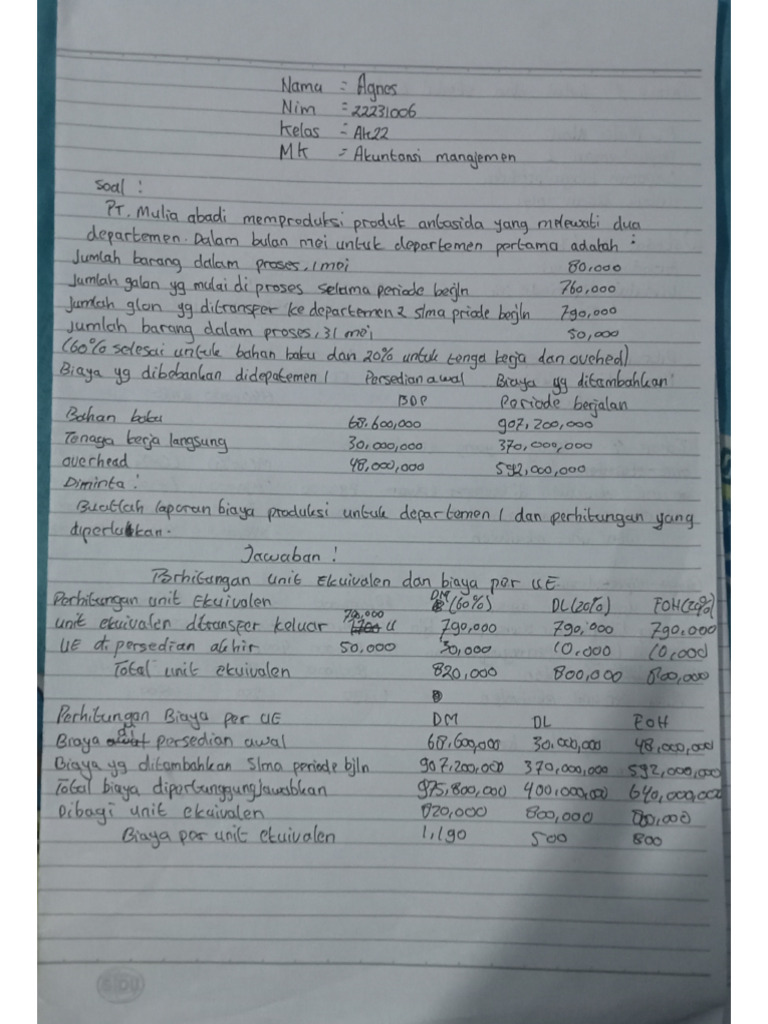 Nama = Agnes
Nim = 22231006
Kelas = Ak22
MK = Akuntansi manajemen
Soal :
PT. Mulia abadi memproduksi produk antasida yang melewati dua
departemen. Dalam bulan mei untuk departemen pertama adalah :
Jumlah barang dalam proses, 1 mei 80,000
Jumlah galon yg mulai di proses selama periode berjln 760,000
Jumlah glon yg ditransper ke departemen 2 slma priode berjln 790,000
Jumlah barang dalam proses, 31 mei 50,000
(60% selesai untuk bahan baku dan 20% untuk tenga kerja dan ovehed)
Biaya yg dibebankan didepatemen 1 Persedian awal Biaya yg ditambahkan
BDP Periode berjalan
Bahan baku 68.600,000 907,200,000
Tenaga kerja langsung 30.000,000 370,000,000
overhead 48,000,000 592,000,000
Diminta :
Buatlah laporan biaya produksi untuk departemen 1 dan perhitungan yang
diperlukan.
Jawaban !
Perhitungan unit Ekuivalen dan biaya per UE
Perhitungan unit Ekuivalen DM (60%) DL (20%) FOH (20%)
unit ekuivalen dtransper keluar 790,000 790,000 790,000 790,000
UE di persedian akhir 50,000 30,000 10,000 10,000
Total unit ekuivalen 820,000 800,000 800,000
Perhitungan Biaya per UE DM DL FOH
Biaya persedian awal 68,600,000 30.000,000 48,000,000
Biaya yg ditambahkan slma periode bjln 907,200,000 370,000,000 592,000,000
Total biaya dipertanggungjawabkan 975,800,000 400,000,000 640,000,000
Dibagi unit ekuivalen 820,000 800,000 800,000
Biaya per unit ekuivalen 1,190 500 800